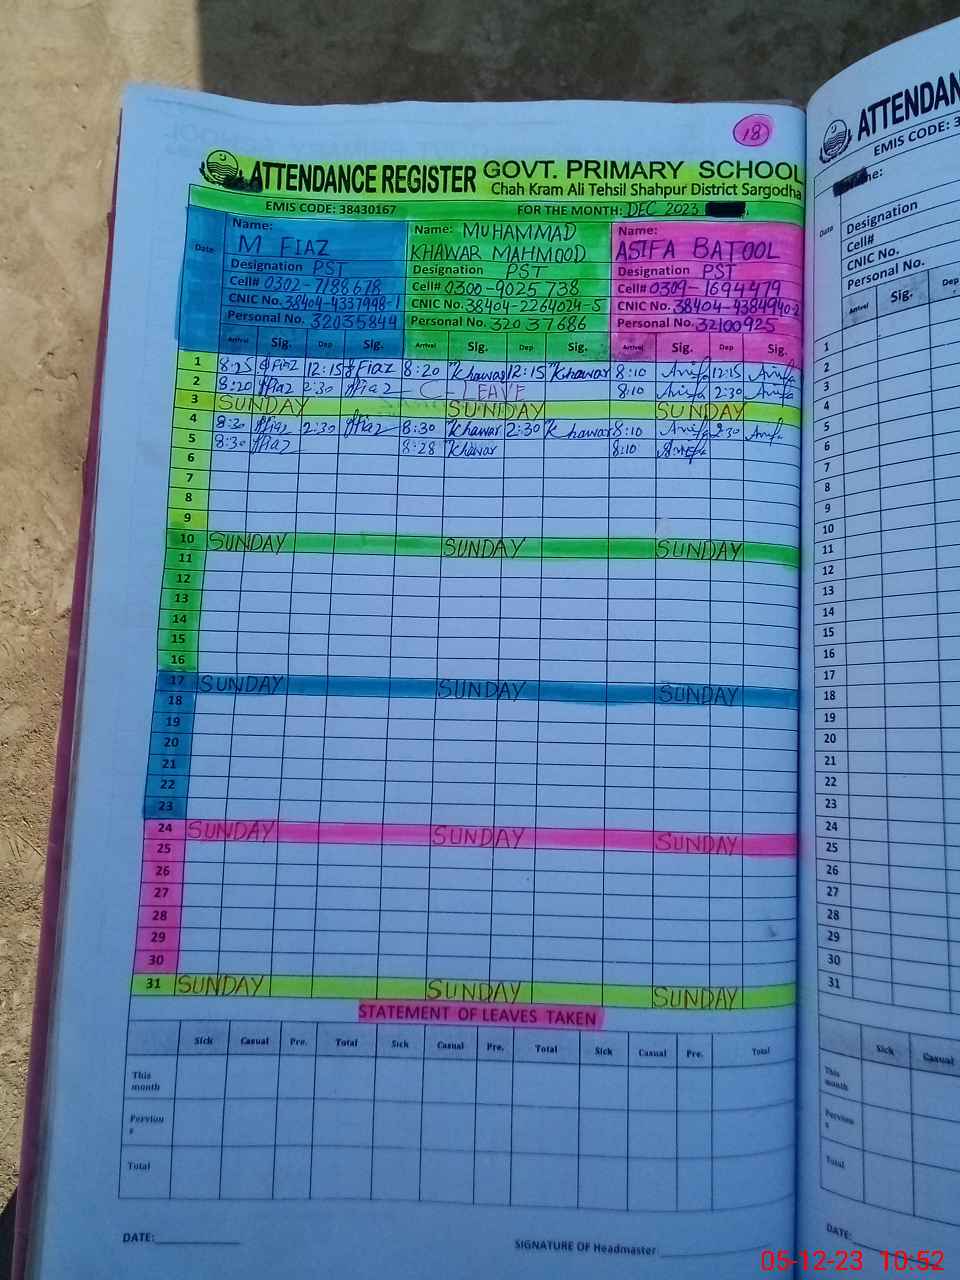 18
ATTENDANCE REGISTER GOVT. PRIMARY SCHOOL
Chah Kram Ali Tehsil Shahpur District Sargodha
EMIS CODE: 38430167 FOR THE MONTH: DEC 2023
Date Name: M FIAZ Name: MUHAMMAD KHAWAR MAHMOOD Name: ASIFA BATOOL
Designation PST Designation PST Designation PST
Cell# 0302-7188678 Cell# 0300-9025738 Cell# 0309-1694479
CNIC No. 38404-4337948-1 CNIC No. 38404-2264024-5 CNIC No. 38404-4384940-2
Personal No. 32035844 Personal No. 32037686 Personal No. 32100925
Arrival Sig. Dep Sig. Arrival Sig. Dep Sig. Arrival Sig. Dep Sig.
1 8:25 ffiaz 12:15 ffiaz 8:20 Khawar 12:15 Khawar 8:10 Asifa 12:15 Asifa
2 8:20 ffiaz 2:30 ffiaz - C-LEAVE 8:10 Asifa 2:30 Asifa
3 SUNDAY SUNDAY SUNDAY
4 8:30 ffiaz 2:30 ffiaz 8:30 Khawar 2:30 Khawar 8:10 Asifa 2:30 Asifa
5 8:30 ffiaz 8:28 Khawar 8:10 Asifa
6
7
8
9
10 SUNDAY SUNDAY SUNDAY
11
12
13
14
15
16
17 SUNDAY SUNDAY SUNDAY
18
19
20
21
22
23
24 SUNDAY SUNDAY SUNDAY
25
26
27
28
29
30
31 SUNDAY SUNDAY SUNDAY
STATEMENT OF LEAVES TAKEN
Sick Casual Pre. Total Sick Casual Pre. Total Sick Casual Pre. Total
This month
Perviou s
Total
DATE:____________ SIGNATURE OF Headmaster ____________
ATTENDAN
EMIS CODE: 3
me:
Date Designation
Cell#
CNIC No.
Personal No.
Arrival Sig. Dep
1
2
3
4
5
6
7
8
9
10
11
12
13
14
15
16
17
18
19
20
21
22
23
24
25
26
27
28
29
30
31
Sick Casual
This month
Perviou s
Total
DATE:
05-12-23 10:52